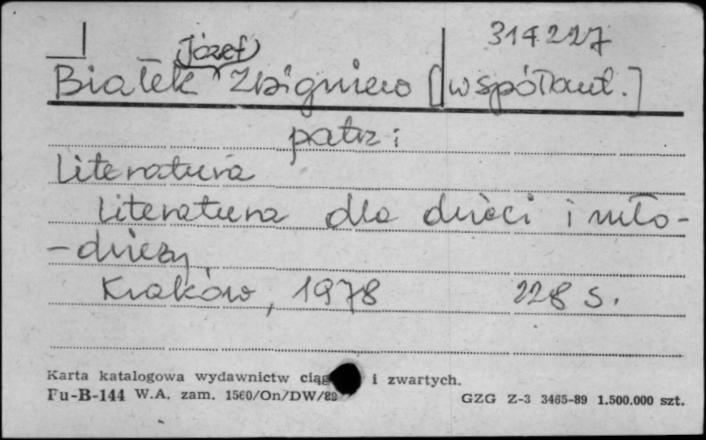 314227
(Józef)
Białek Zbigniew [współaut.]
patrz:
Literatura
Literatura dla dzieci i mło-
-dzieży
Kraków, 1978 228 s.
Karta katalogowa wydawnictw ciąg i zwartych.
Pu-B-144 W.A. zam. 1560/On/DW/89
GZG Z-3 3465-89 1.500.000 szt.